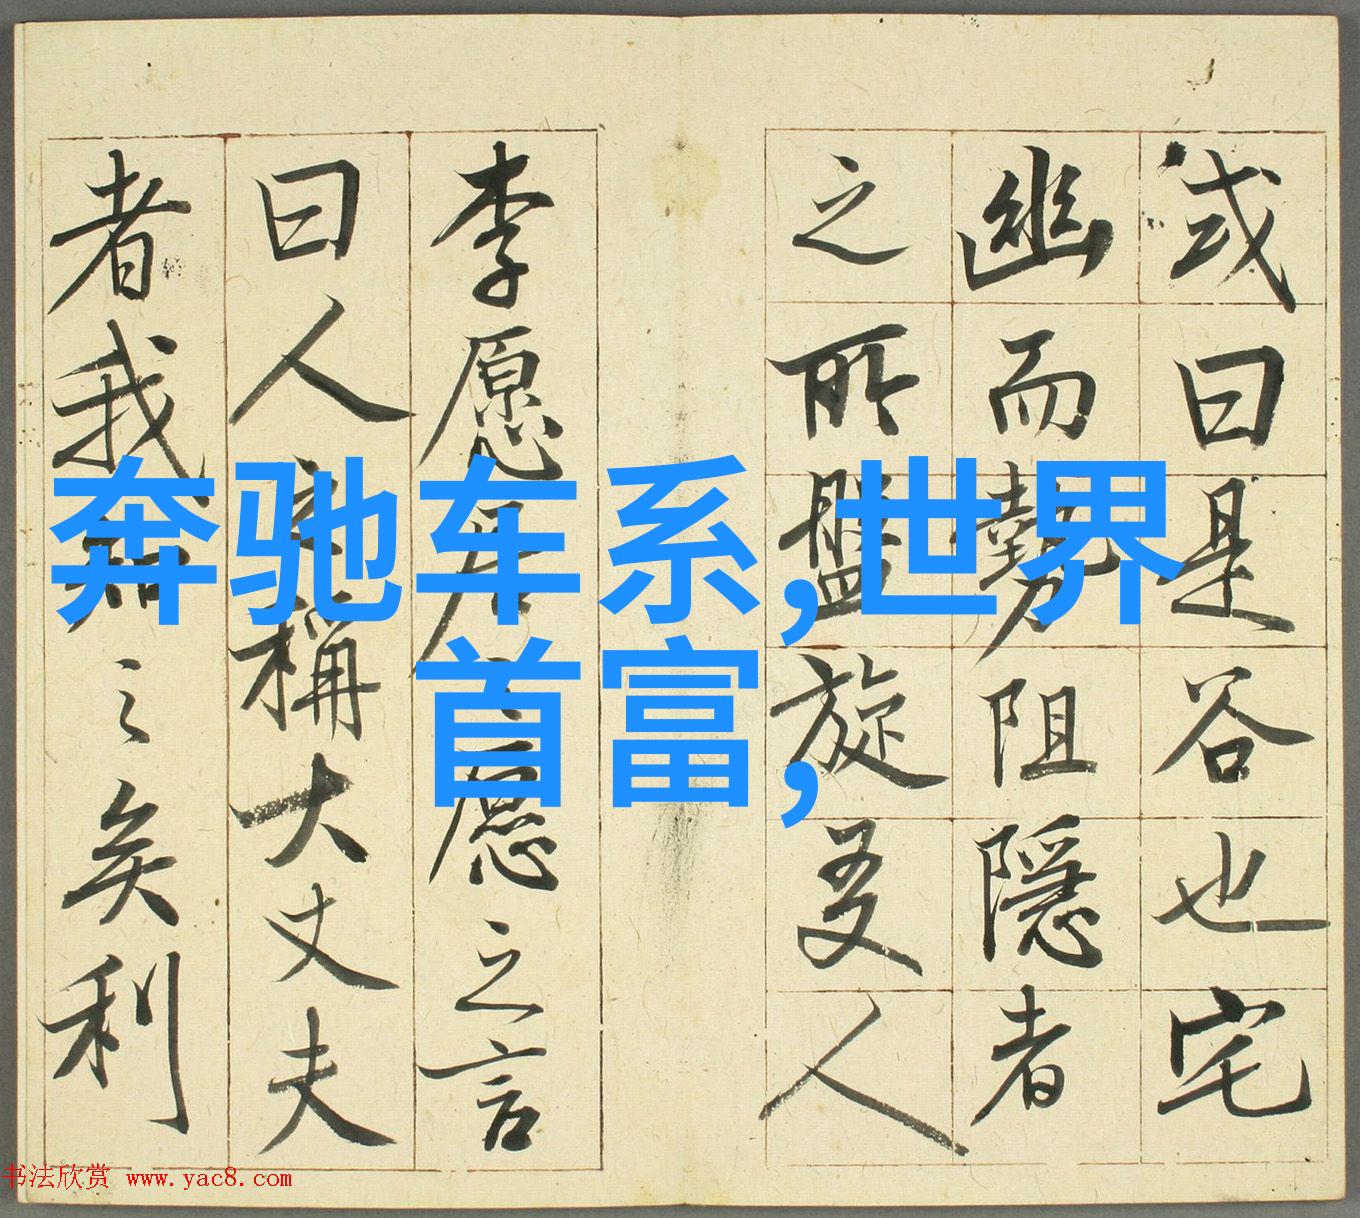 或曰是谷也宅
幽而勢阻隱者
之所盤旋友人
李愿居之愿之言
曰人之稱大丈夫
者我知之矣利
奔驰车系,世界
首富,
书法欣赏 www.yac8.com